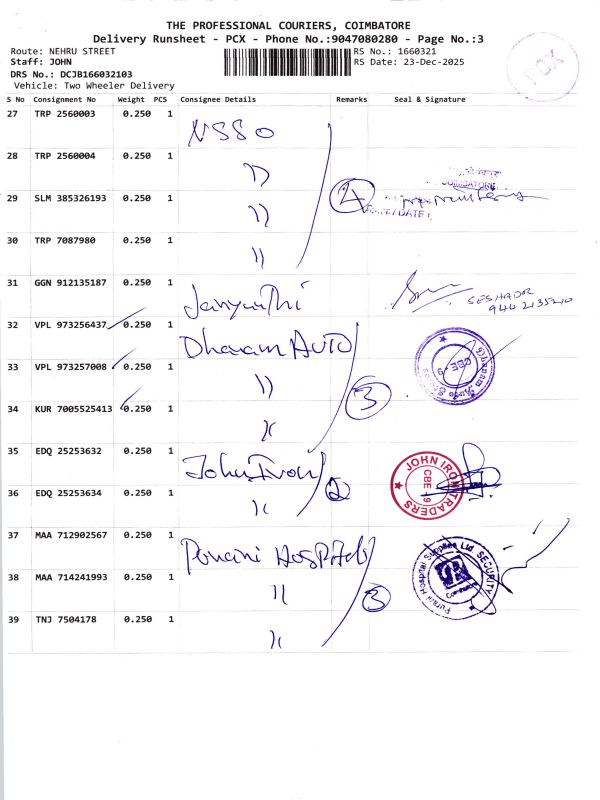 THE PROFESSIONAL COURIERS, COIMBATORE
Delivery Runsheet - PCX - Phone No.:9047080280 - Page No.:3
Route: NEHRU STREET RS No.: 1660321
Staff: JOHN RS Date: 23-Dec-2025
DRS No.: DCJB166032103
Vehicle: Two Wheeler Delivery
PCX
S No Consignment No Weight PCS Consignee Details Remarks Seal & Signature
27 TRP 2560003 0.250 1 NSSO
28 TRP 2560004 0.250 1 "
COIMBATORE
29 SLM 385326193 0.250 1 " 4
DATE
30 TRP 7087980 0.250 1 "
31 GGN 912135187 0.250 1
SESHADR
32 VPL 973256437 0.250 1 Dhanam Auto
33 VPL 973257008 0.250 1 " Dhanam Auto Stores CBE-9
34 KUR 7005525413 0.250 1 " 3
35 EDQ 25253632 0.250 1 John Iron JOHN IRON TRADERS CBE 9
36 EDQ 25253634 0.250 1 " 2
37 MAA 712902567 0.250 1 Purani Hospitals Purani Hospital Supplies Ltd SECURITY
38 MAA 714241993 0.250 1 " 3
39 TNJ 7504178 0.250 1 "